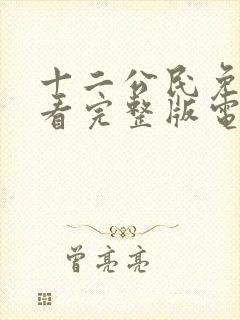 十二公民免
看完整版電
曾亮亮